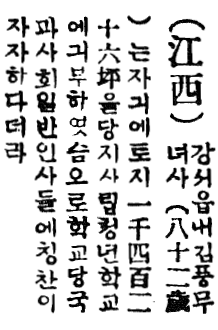 (江西) 강서읍내김풍무
녀사 (八十二歲
)는자긔에토지一千四百二
十六坪을당지사립쳥년학교
에긔부하엿슴오로학교당국
과사회일반인사들에칭찬이
자자하다더라